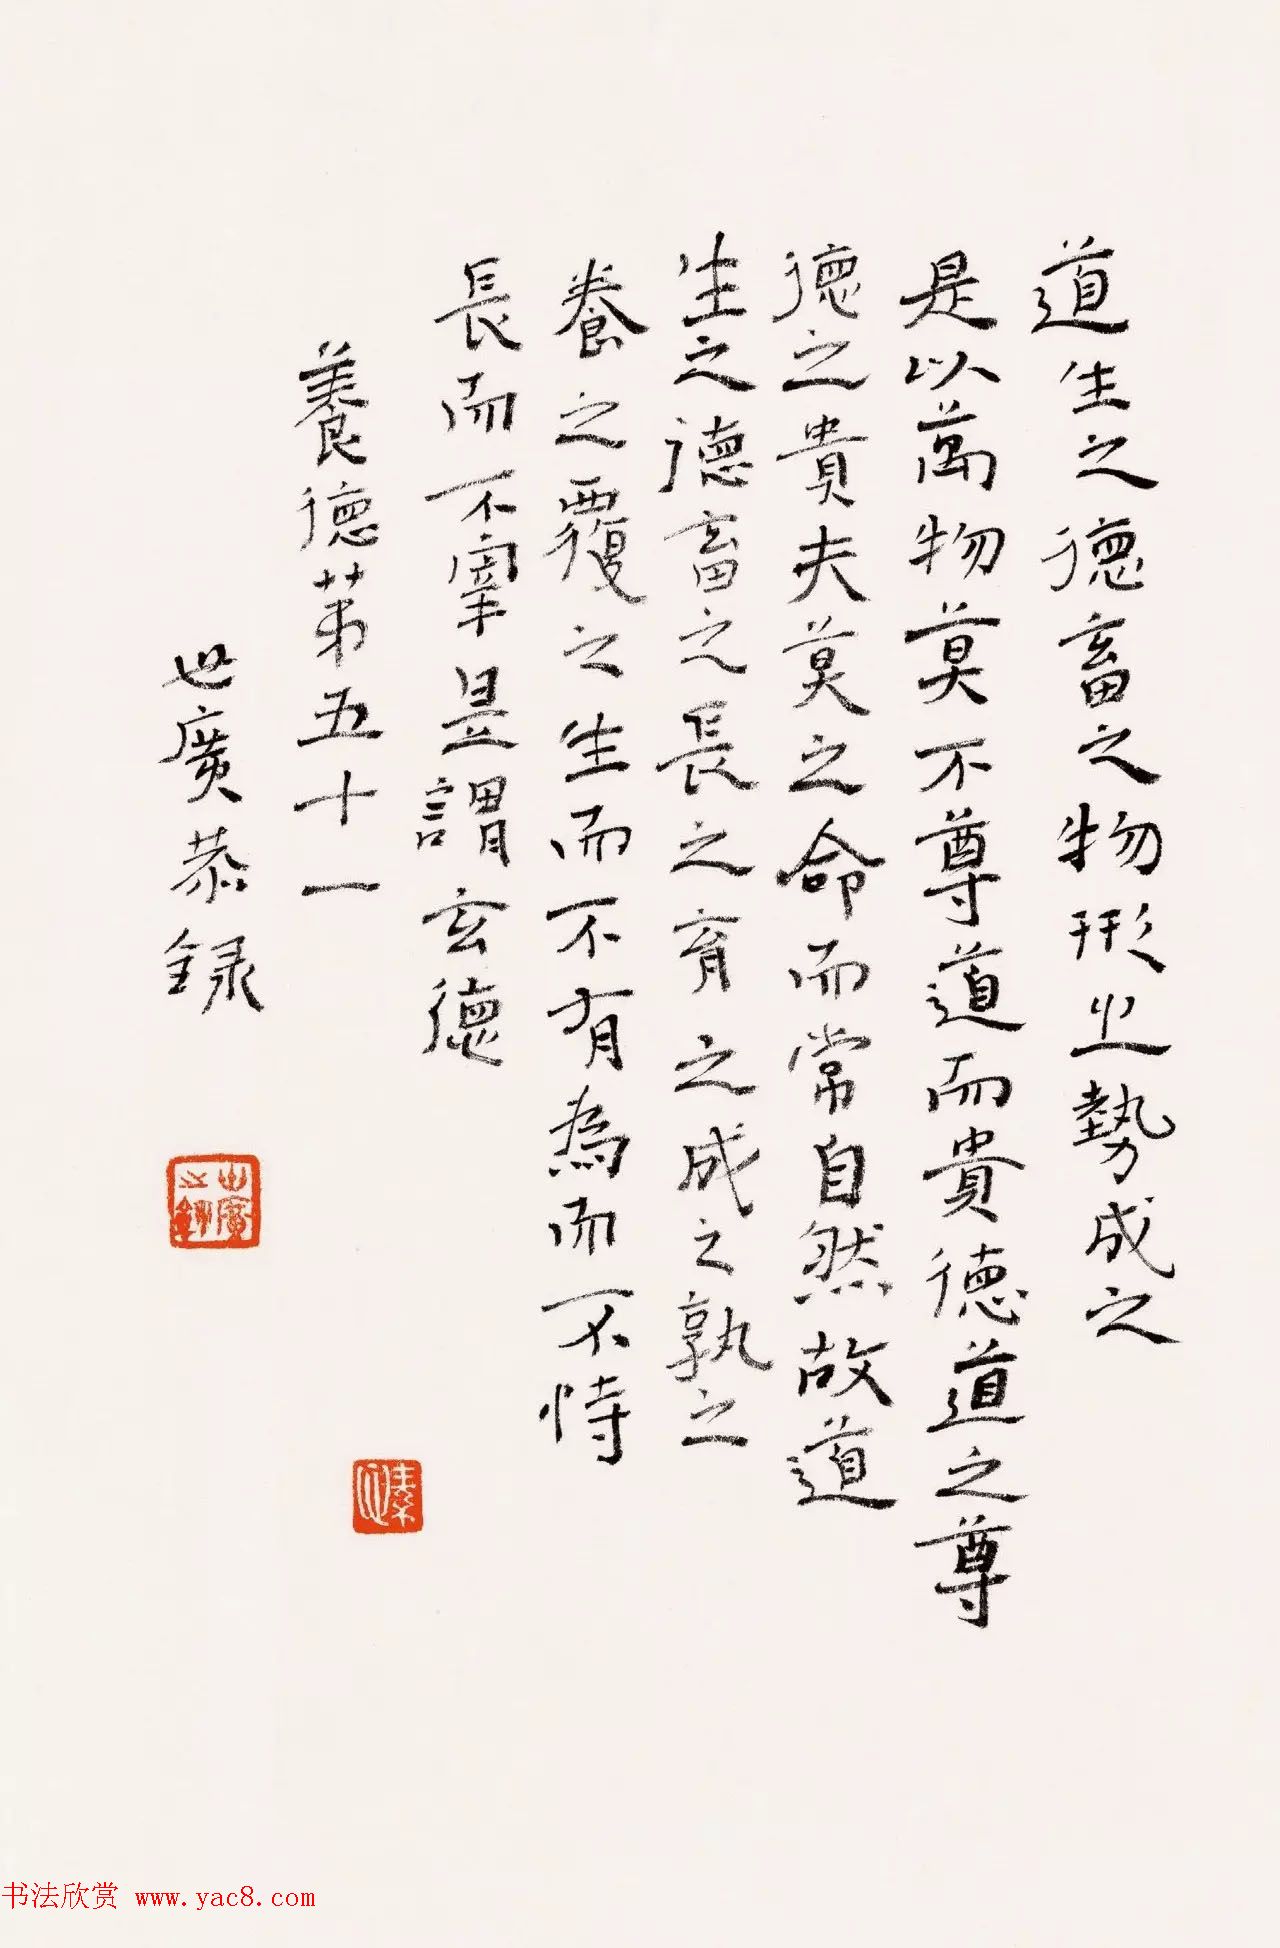 道生之德畜之物形之勢成之
是以萬物莫不尊道而貴德道之尊
德之貴夫莫之命而常自然故道
生之德畜之長之育之成之孰之
養之覆之生而不有為而不恃
長而不宰是謂玄德
養德第五十一
世廣恭錄
书法欣赏 www.yac8.com